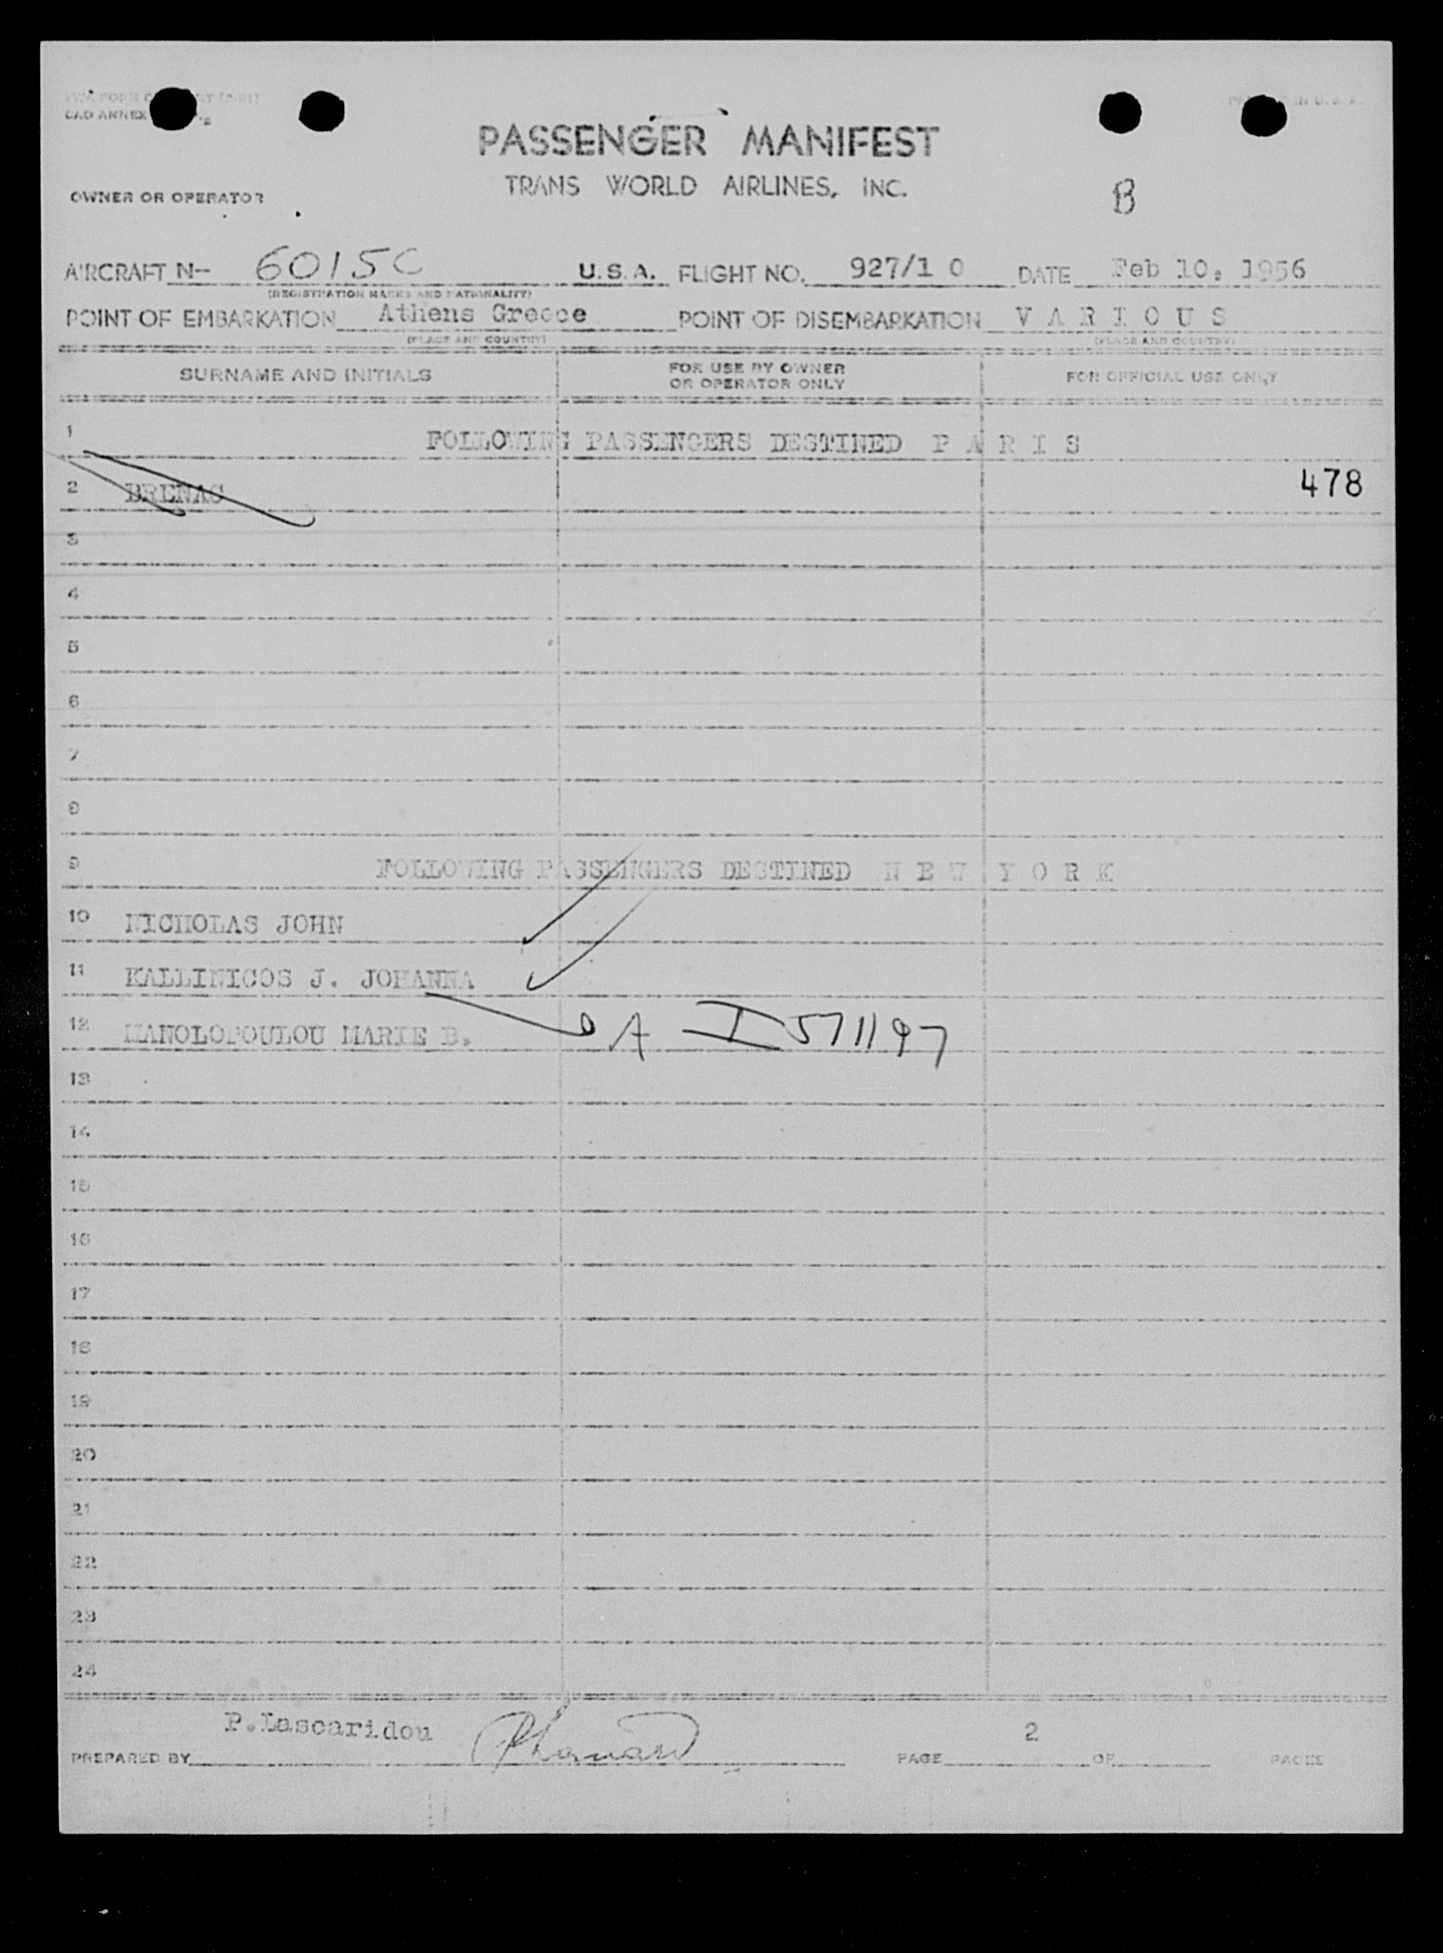 CAO ANNEX
PASSENGER MANIFEST
TRANS WORLD AIRLINES, INC.
OWNER OR OPERATOR
B
AIRCRAFT N- 6015C U.S.A. FLIGHT NO. 927/1 0 DATE Feb 10, 1956
(REGISTRATION MARKS AND NATIONALITY)
POINT OF EMBARKATION Athens Greece POINT OF DISEMBARKATION V A R I O U S
(PLACE AND COUNTRY) (PLACE AND COUNTRY)
SURNAME AND INITIALS FOR USE BY OWNER OR OPERATOR ONLY FOR OFFICIAL USE ONLY
1 FOLLOWING PASSENGERS DESTINED P A R I S
2 BRENAS 478
3
4
5
6
7
8
9 FOLLOWING PASSENGERS DESTINED N E W Y O R K
10 NICHOLAS JOHN
11 KALLINICOS J. JOHANNA
12 MANOLOPOULOU MARIE B. A I 571197
13
14
15
16
17
18
19
20
21
22
23
24
P.Lascaridou
PREPARED BY PAGE 2 OF PAGES